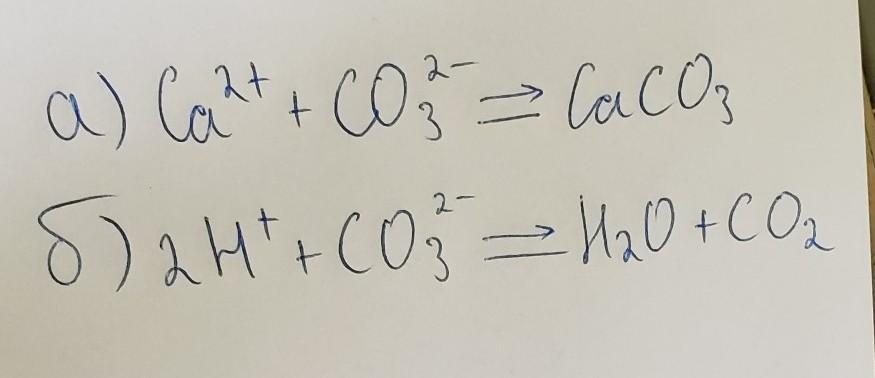 а) Ca²⁺ + CO₃²⁻ ⇒ CaCO₃
б) 2H⁺ + CO₃²⁻ ⇒ H₂O + CO₂